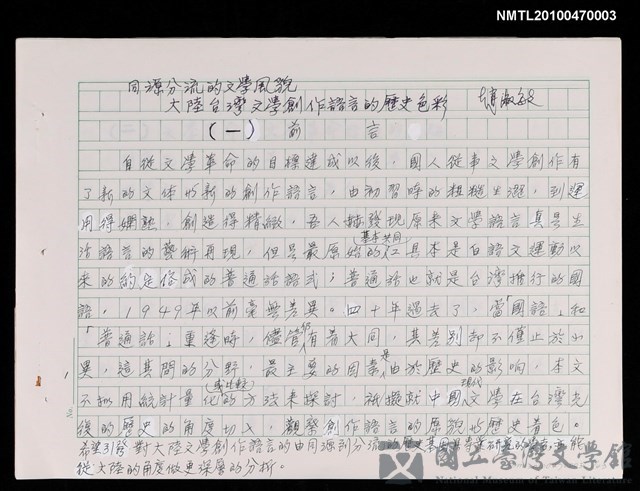 NMTL20100470003
同源分流的文學風貌
大陸台灣文學創作語言的歷史色彩
(一) 前言
自從文學革命的目標達成以後，國人從事文學創作有
了新的文体和新的創作語言，由初習時的粗糙生澀，到運
用得嫻熟，創造得精緻，吾人赫發現原來文學語言真是生
活語言的藝術再現，但是最原始的基本共同工具本是白話文運動以
來的約定俗成的普通話語式；普通話也就是台灣推行的國
語，1949年以前毫無差異。四十年過去了，當「國語」和
「普通話」重逢時，儘管仍有著大同，其差別卻不僅止於小
異，這其間的分野，最主要的因素是由於歷史的影響，本文
不擬用統計量化的(或比較)方法來探討，祇擬就中國現代文學在台灣光
後的歷史的角度切入，觀察創作語言的原貌和歷史着色。
希望引發對大陸文學創作語言的由同源到分流的歷史
從大陸的角度做更深層的分析。
國立臺灣文學館
National Museum of Taiwan Literature